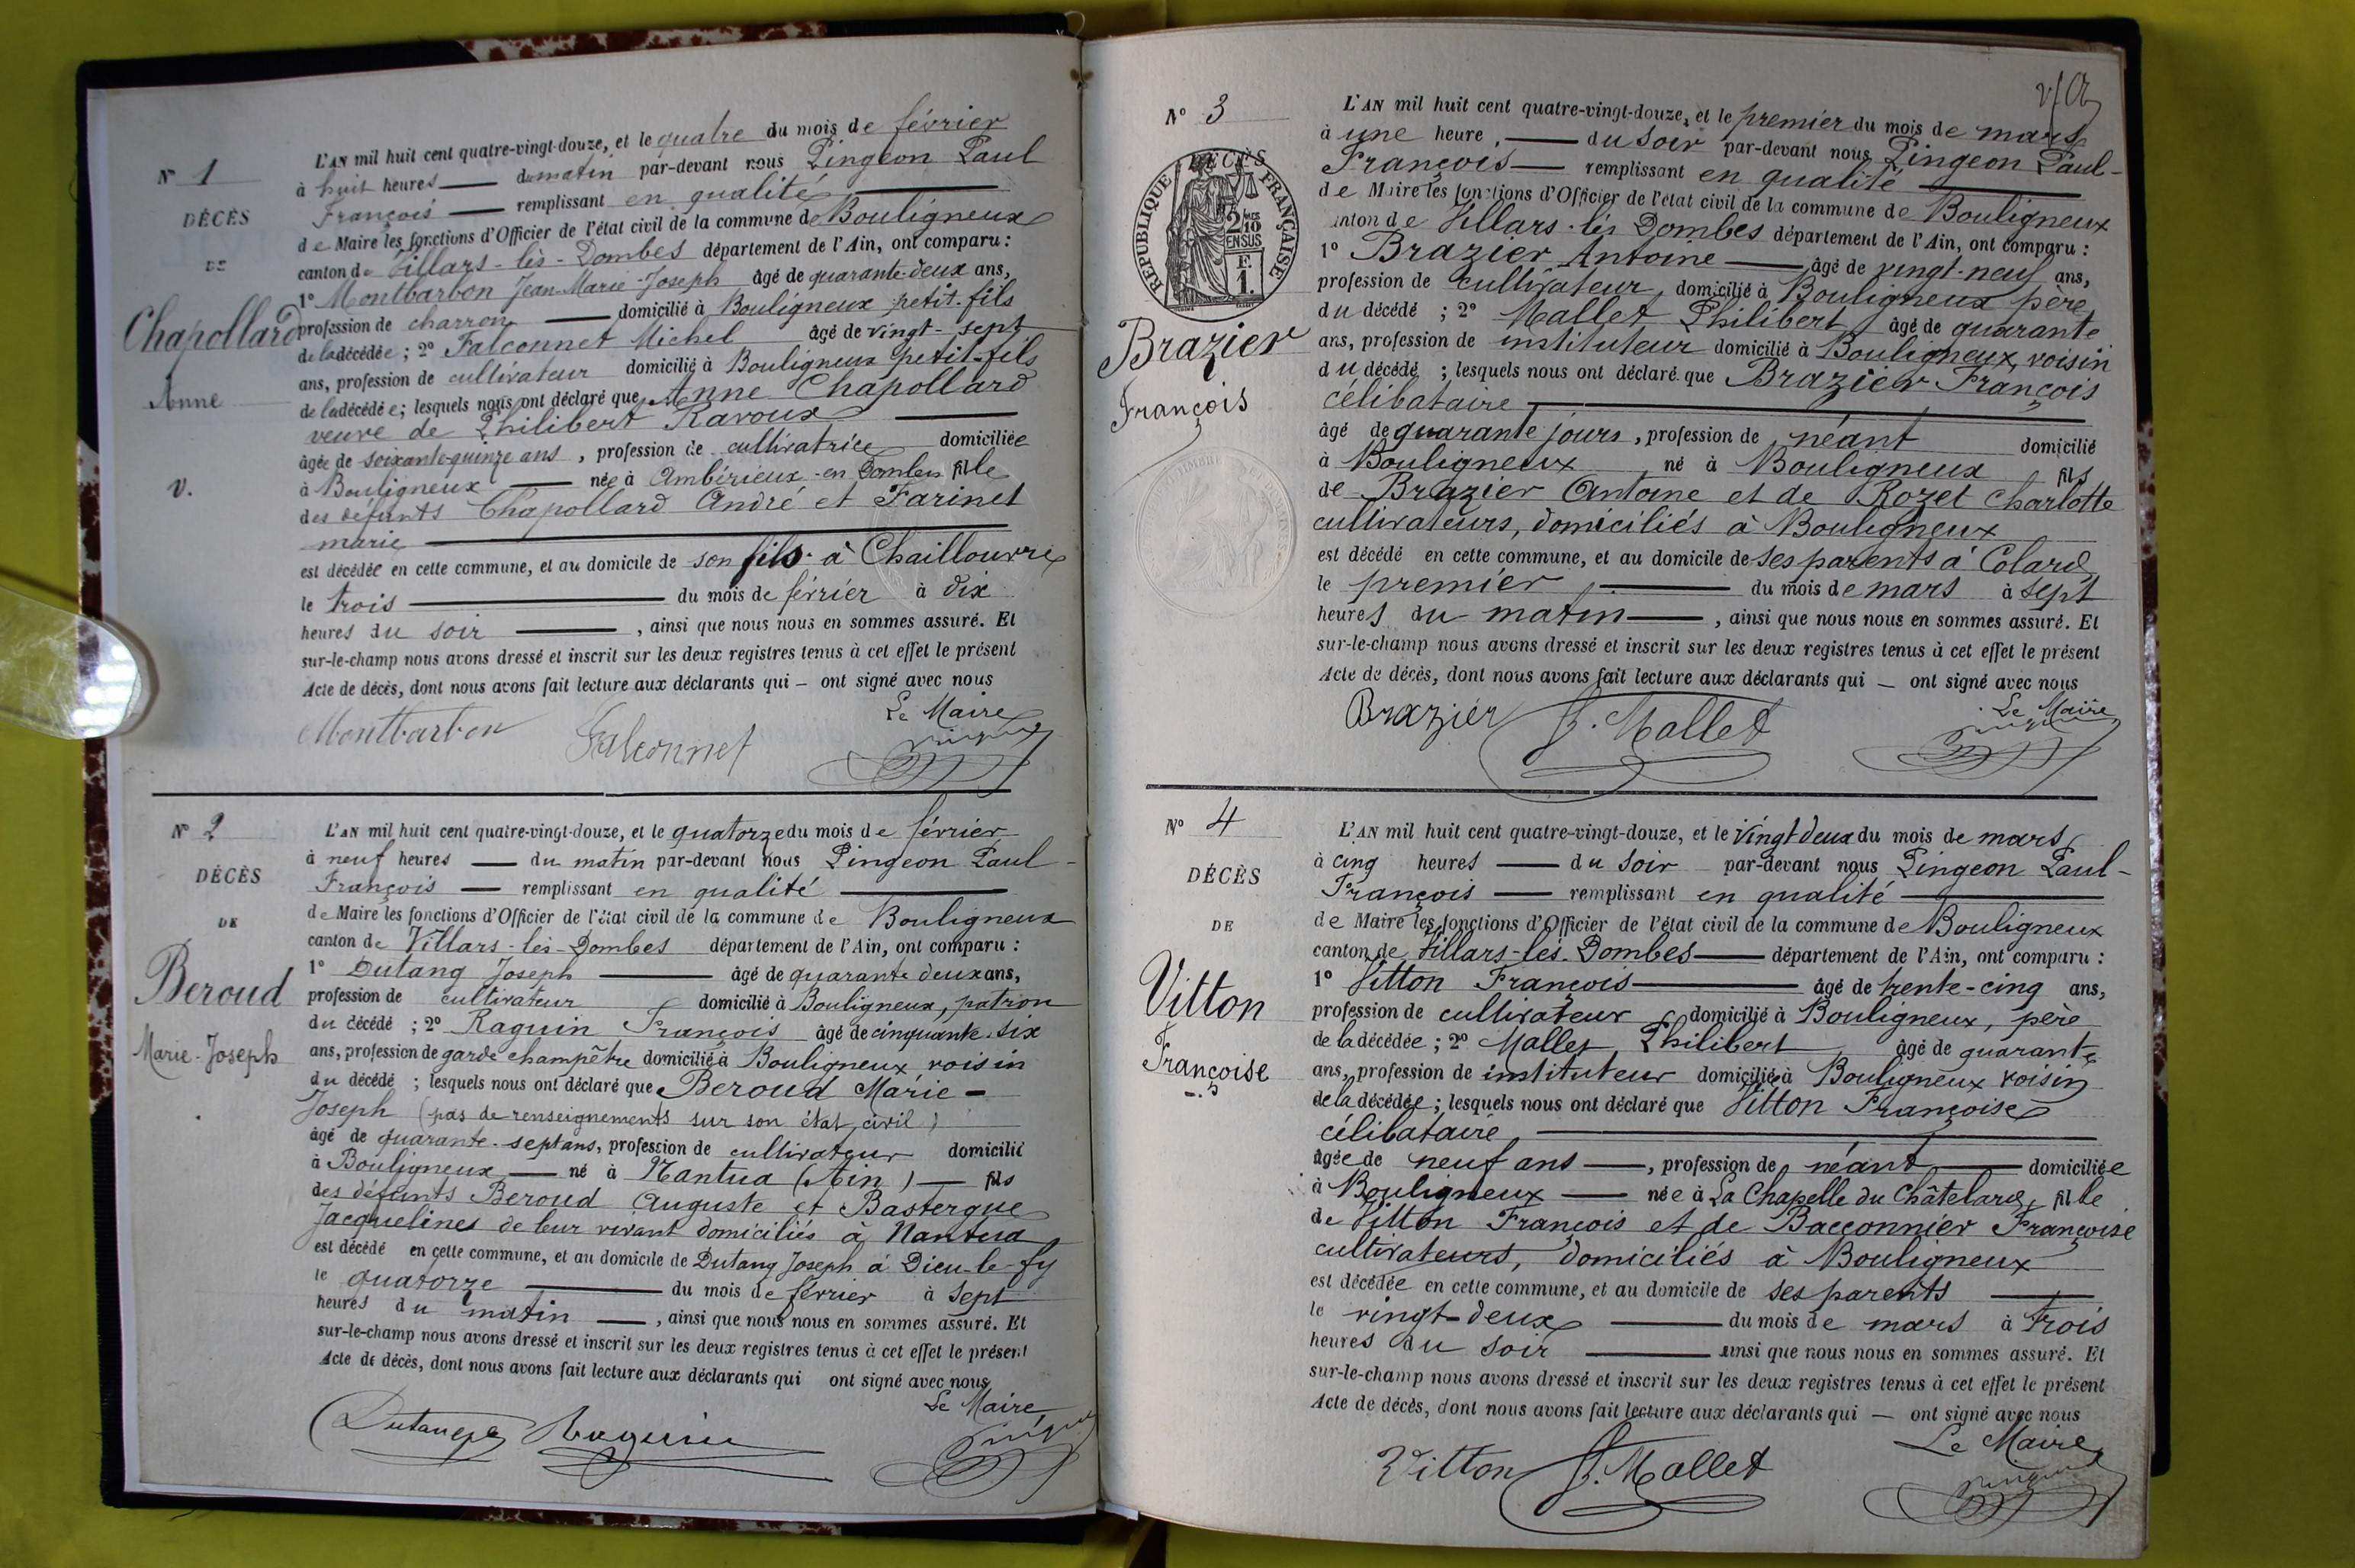 N° 1
DÉCÈS
DE
Chapollard
Anne
V.
L'AN mil huit cent quatre-vingt-douze, et le quatre du mois de février
à huit heures — du matin par-devant nous Pingeon Paul
François — remplissant en qualité —
de Maire les fonctions d'Officier de l'état civil de la commune de Bouligneux
canton de Villars-les-Dombes département de l'Ain, ont comparu :
1° Montbarbon Jean-Marie-Joseph âgé de quarante-deux ans,
profession de charron — domicilié à Bouligneux petit-fils
de la décédée ; 2° Falconnet Michel âgé de vingt-sept
ans, profession de cultivateur domicilié à Bouligneux petit-fils
de la décédée ; lesquels nous ont déclaré que Anne Chapollard
veuve de Philibert Ravoux —
âgée de soixante-quinze ans, profession de cultivatrice domiciliée
à Bouligneux — née à Ambérieux-en-Dombes fille
des défunts Chapollard André et Farinet
marie —
est décédée en cette commune, et au domicile de son fils à Chaillouvre
le trois — du mois de février à dix
heures du soir — , ainsi que nous nous en sommes assuré. Et
sur-le-champ nous avons dressé et inscrit sur les deux registres tenus à cet effet le présent
Acte de décès, dont nous avons fait lecture aux déclarants qui — ont signé avec nous
Le Maire
Montbarbon Falconnet Pingeon
N° 2
DÉCÈS
DE
Beroud
Marie-Joseph
L'AN mil huit cent quatre-vingt-douze, et le quatorze du mois de février
à neuf heures — du matin par-devant nous Pingeon Paul-
François — remplissant en qualité —
de Maire les fonctions d'Officier de l'état civil de la commune de Bouligneux
canton de Villars-les-Dombes département de l'Ain, ont comparu :
1° Dutang Joseph — âgé de quarante deux ans,
profession de cultivateur domicilié à Bouligneux, patron
du décédé ; 2° Raguin François âgé de cinquante-six
ans, profession de garde champêtre domicilié à Bouligneux voisin
du décédé ; lesquels nous ont déclaré que Beroud Marie-
Joseph (pas de renseignements sur son état civil)
âgé de quarante-sept ans, profession de cultivateur domicilié
à Bouligneux — né à Nantua (Ain) — fils
des défunts Beroud Auguste et Bastergue
Jacquelines de leur vivant domiciliés à Nantua
est décédé en cette commune, et au domicile de Dutang Joseph à Dieu-le-fy
le quatorze — du mois de février à sept
heures du matin — , ainsi que nous nous en sommes assuré. Et
sur-le-champ nous avons dressé et inscrit sur les deux registres tenus à cet effet le présent
Acte de décès, dont nous avons fait lecture aux déclarants qui ont signé avec nous
Le Maire
Dutang Raguin Pingeon
N° 3
RÉPUBLIQUE FRANÇAISE
DÉCÈS
2/10
EN SUS
F.
1.
Brazier
François
L'AN mil huit cent quatre-vingt-douze, et le premier du mois de mars
à une heure, — du soir par-devant nous Pingeon Paul-
François — remplissant en qualité —
de Maire les fonctions d'Officier de l'état civil de la commune de Bouligneux
canton de Villars-les Dombes département de l'Ain, ont comparu :
1° Brazier Antoine — âgé de vingt-neuf ans,
profession de cultivateur, domicilié à Bouligneux père
du décédé ; 2° Mallet Philibert âgé de quarante
ans, profession de instituteur domicilié à Bouligneux, voisin
du décédé ; lesquels nous ont déclaré que Brazier François
célibataire —
âgé de quarante jours, profession de néant domicilié
à Bouligneux né à Bouligneux fils
de Brazier Antoine et de Rozet Charlotte
cultivateurs, domiciliés à Bouligneux
est décédé en cette commune, et au domicile de ses parents à Colard
le premier — du mois de mars à sept
heures du matin — , ainsi que nous nous en sommes assuré. Et
sur-le-champ nous avons dressé et inscrit sur les deux registres tenus à cet effet le présent
Acte de décès, dont nous avons fait lecture aux déclarants qui — ont signé avec nous
Le Maire
Brazier P. Mallet Pingeon
N° 4
DÉCÈS
DE
Vitton
Françoise
L'AN mil huit cent quatre-vingt-douze, et le vingt deux du mois de mars
à cinq heures — du soir par-devant nous Pingeon Paul-
François — remplissant en qualité —
de Maire les fonctions d'Officier de l'état civil de la commune de Bouligneux
canton de Villars-les-Dombes — département de l'Ain, ont comparu :
1° Vitton François — âgé de trente-cinq ans,
profession de cultivateur domicilié à Bouligneux, père
de la décédée ; 2° Mallet Philibert âgé de quarante
ans, profession de instituteur domicilié à Bouligneux voisin
de la décédée ; lesquels nous ont déclaré que Vitton Françoise
célibataire —
âgée de neuf ans — , profession de néant — domiciliée
à Bouligneux — née à La Chapelle du Châtelard, fille
de Vitton François et de Bacconnier Françoise
cultivateurs, domiciliés à Bouligneux
est décédée en cette commune, et au domicile de ses parents —
le vingt-deux — du mois de mars à trois
heures du soir — ainsi que nous nous en sommes assuré. Et
sur-le-champ nous avons dressé et inscrit sur les deux registres tenus à cet effet le présent
Acte de décès, dont nous avons fait lecture aux déclarants qui — ont signé avec nous
Le Maire
Vitton P. Mallet Pingeon